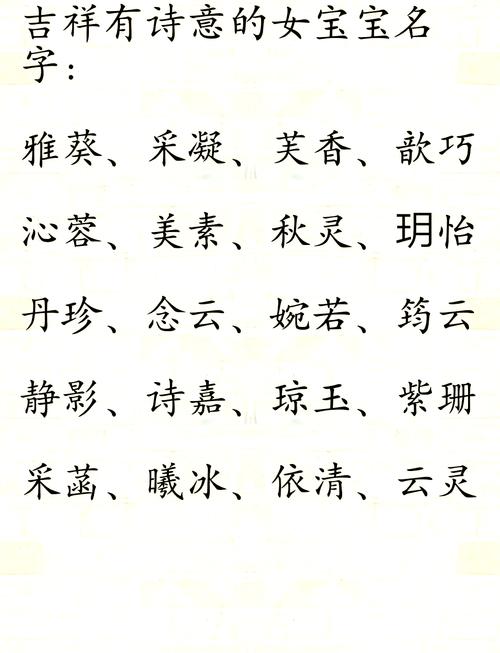 吉祥有诗意的女宝宝名
字:
雅葵、采凝、芙香、歆巧
沁蓉、美素、秋灵、玥怡
丹珍、念云、婉若、筠云
静影、诗嘉、琼玉、紫珊
采菡、曦冰、依清、云灵